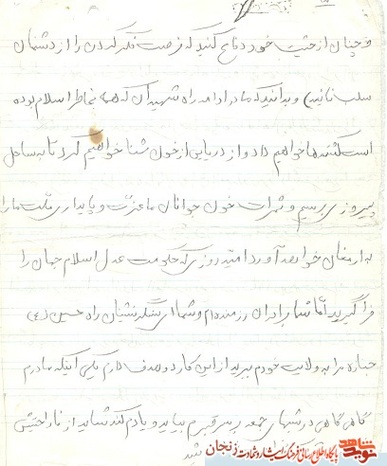 و چنان از حیثیت خود دفاع کنید که فرصت فکر کردن را از دشمنان
سلب نمائید و بدانید که ما در ادامه راه شهیدان که همه بخاطر اسلام بوده
است کشته ها خواهیم داد و از دریایی از خون شنا خواهیم کرد تا به ساحل
پیروزی برسیم و ثمرات خون جوانان ما عزت و پایداری ملت ما را
به ارمغان خواهد آورد امید روزی که حکومت عدل اسلام جهان را
فرا گیرید اما شما برادران رزمنده ام و شما ای سنگر نشینان راه حسین (ع)
جنازه مرا به ولایت خودم ببرید از این کار دو هدف دارم یکی اینکه مادرم
گاه گاهی در شبهای جمعه بر سر قبرم بیاید و یادم کند شاید از ناراحتیش
نوید شاهد
پایگاه اطلاع رسانی فرهنگ ایثار و شهادت زنجان